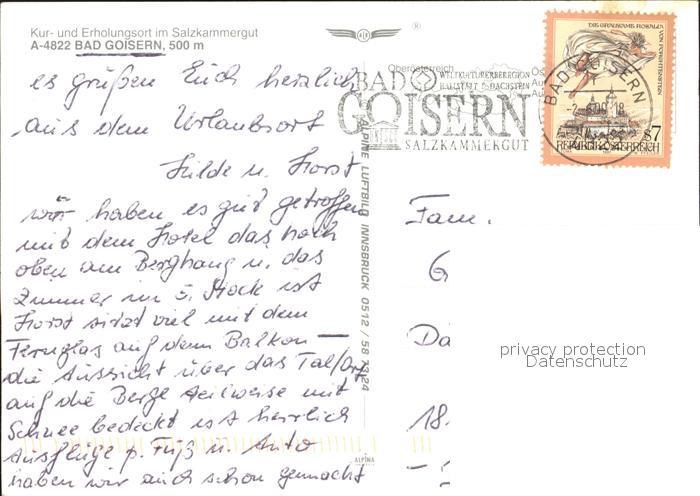 Kur- und Erholungsort im Salzkammergut
A-4822 BAD GOISERN, 500 m
es grüßen Euch herzlich
aus dem Urlaubsort
Hilde u. Horst
wir haben es gut getroffen
mit dem Hotel das hoch
oben am Berghang u. das
Zimmer im 5. Stock ist
Horst sitzt viel mit dem
Fernglas auf dem Balkon —
die Aussicht über das Tal/Ort
auf die Berge teilweise mit
Schnee bedeckt ist herrlich
Ausflüge p. Fuß u. Auto
haben wir auch schon gemacht
ALPINE LUFTBILD INNSBRUCK 0512 / 58 13 24
ALPINA
®
Oberösterreich
BAD
WELTKULTURERBEREGION
HALLSTATT DACHSTEIN
GOISERN
SALZKAMMERGUT
BAD GOISERN
DIE GRAUSAME ROSALIA
VON FORCHTENSTEIN
S7
REPUBLIK ÖSTERREICH
Fam.
G
Da
18.
privacy protection
Datenschutz